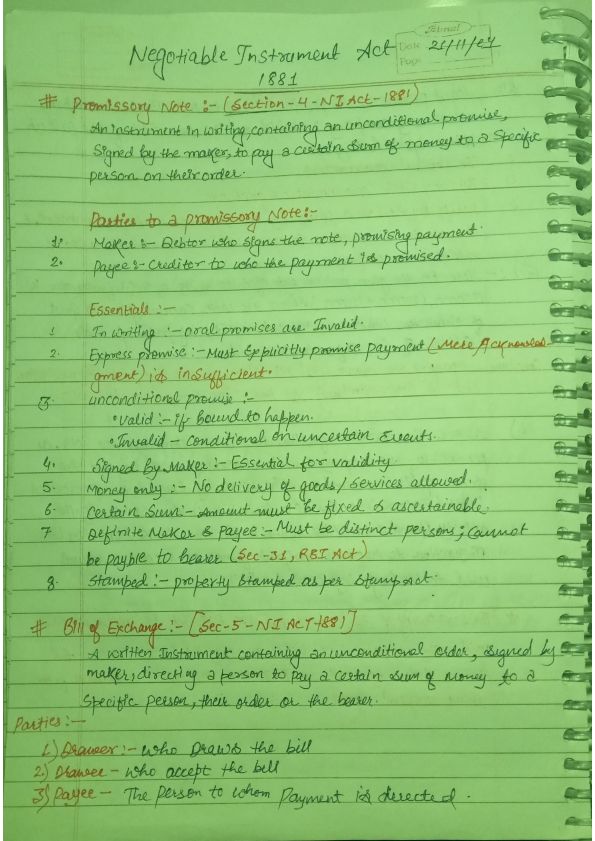 Negotiable Instrument Act
1881
Date 21/11/24
Page
# Promissory Note :- (Section-4-NI Act-1881)
An instrument in writing, containing an unconditional promise,
Signed by the maker, to pay a certain sum of money to a Specific
person on their order.
Parties to a promissory Note:-
1. Maker :- Debtor who signs the note, promising payment.
2. Payee :- Creditor to who the payment is promised.
Essentials :-
1 In writing :- oral promises are Invalid.
2. Express promise :- Must Explicitly promise payment (Mere Acknowled-
gment) is insufficient.
3. unconditional promise :-
• Valid :- if bound to happen.
• Invalid - conditional on uncertain Events.
4. Signed by Maker :- Essential for validity
5. Money only :- No delivery of goods/services allowed.
6. Certain Sum:- Amount must be fixed & ascertainable.
7 Definite Maker & payee :- Must be distinct persons; cannot
be payble to bearer (Sec-31, RBI Act)
8. Stamped :- property stamped as per stamp act.
# Bill of Exchange :- [Sec-5-NI ACT-1881]
A written Instrument containing an unconditional order, signed by
maker, directing a person to pay a certain sum of money to a
Specific person, their order or the bearer.
Parties :-
1) Drawer :- who Draws the bill
2) Drawee - who accept the bill
3) Payee - The person to whom Payment is directed.